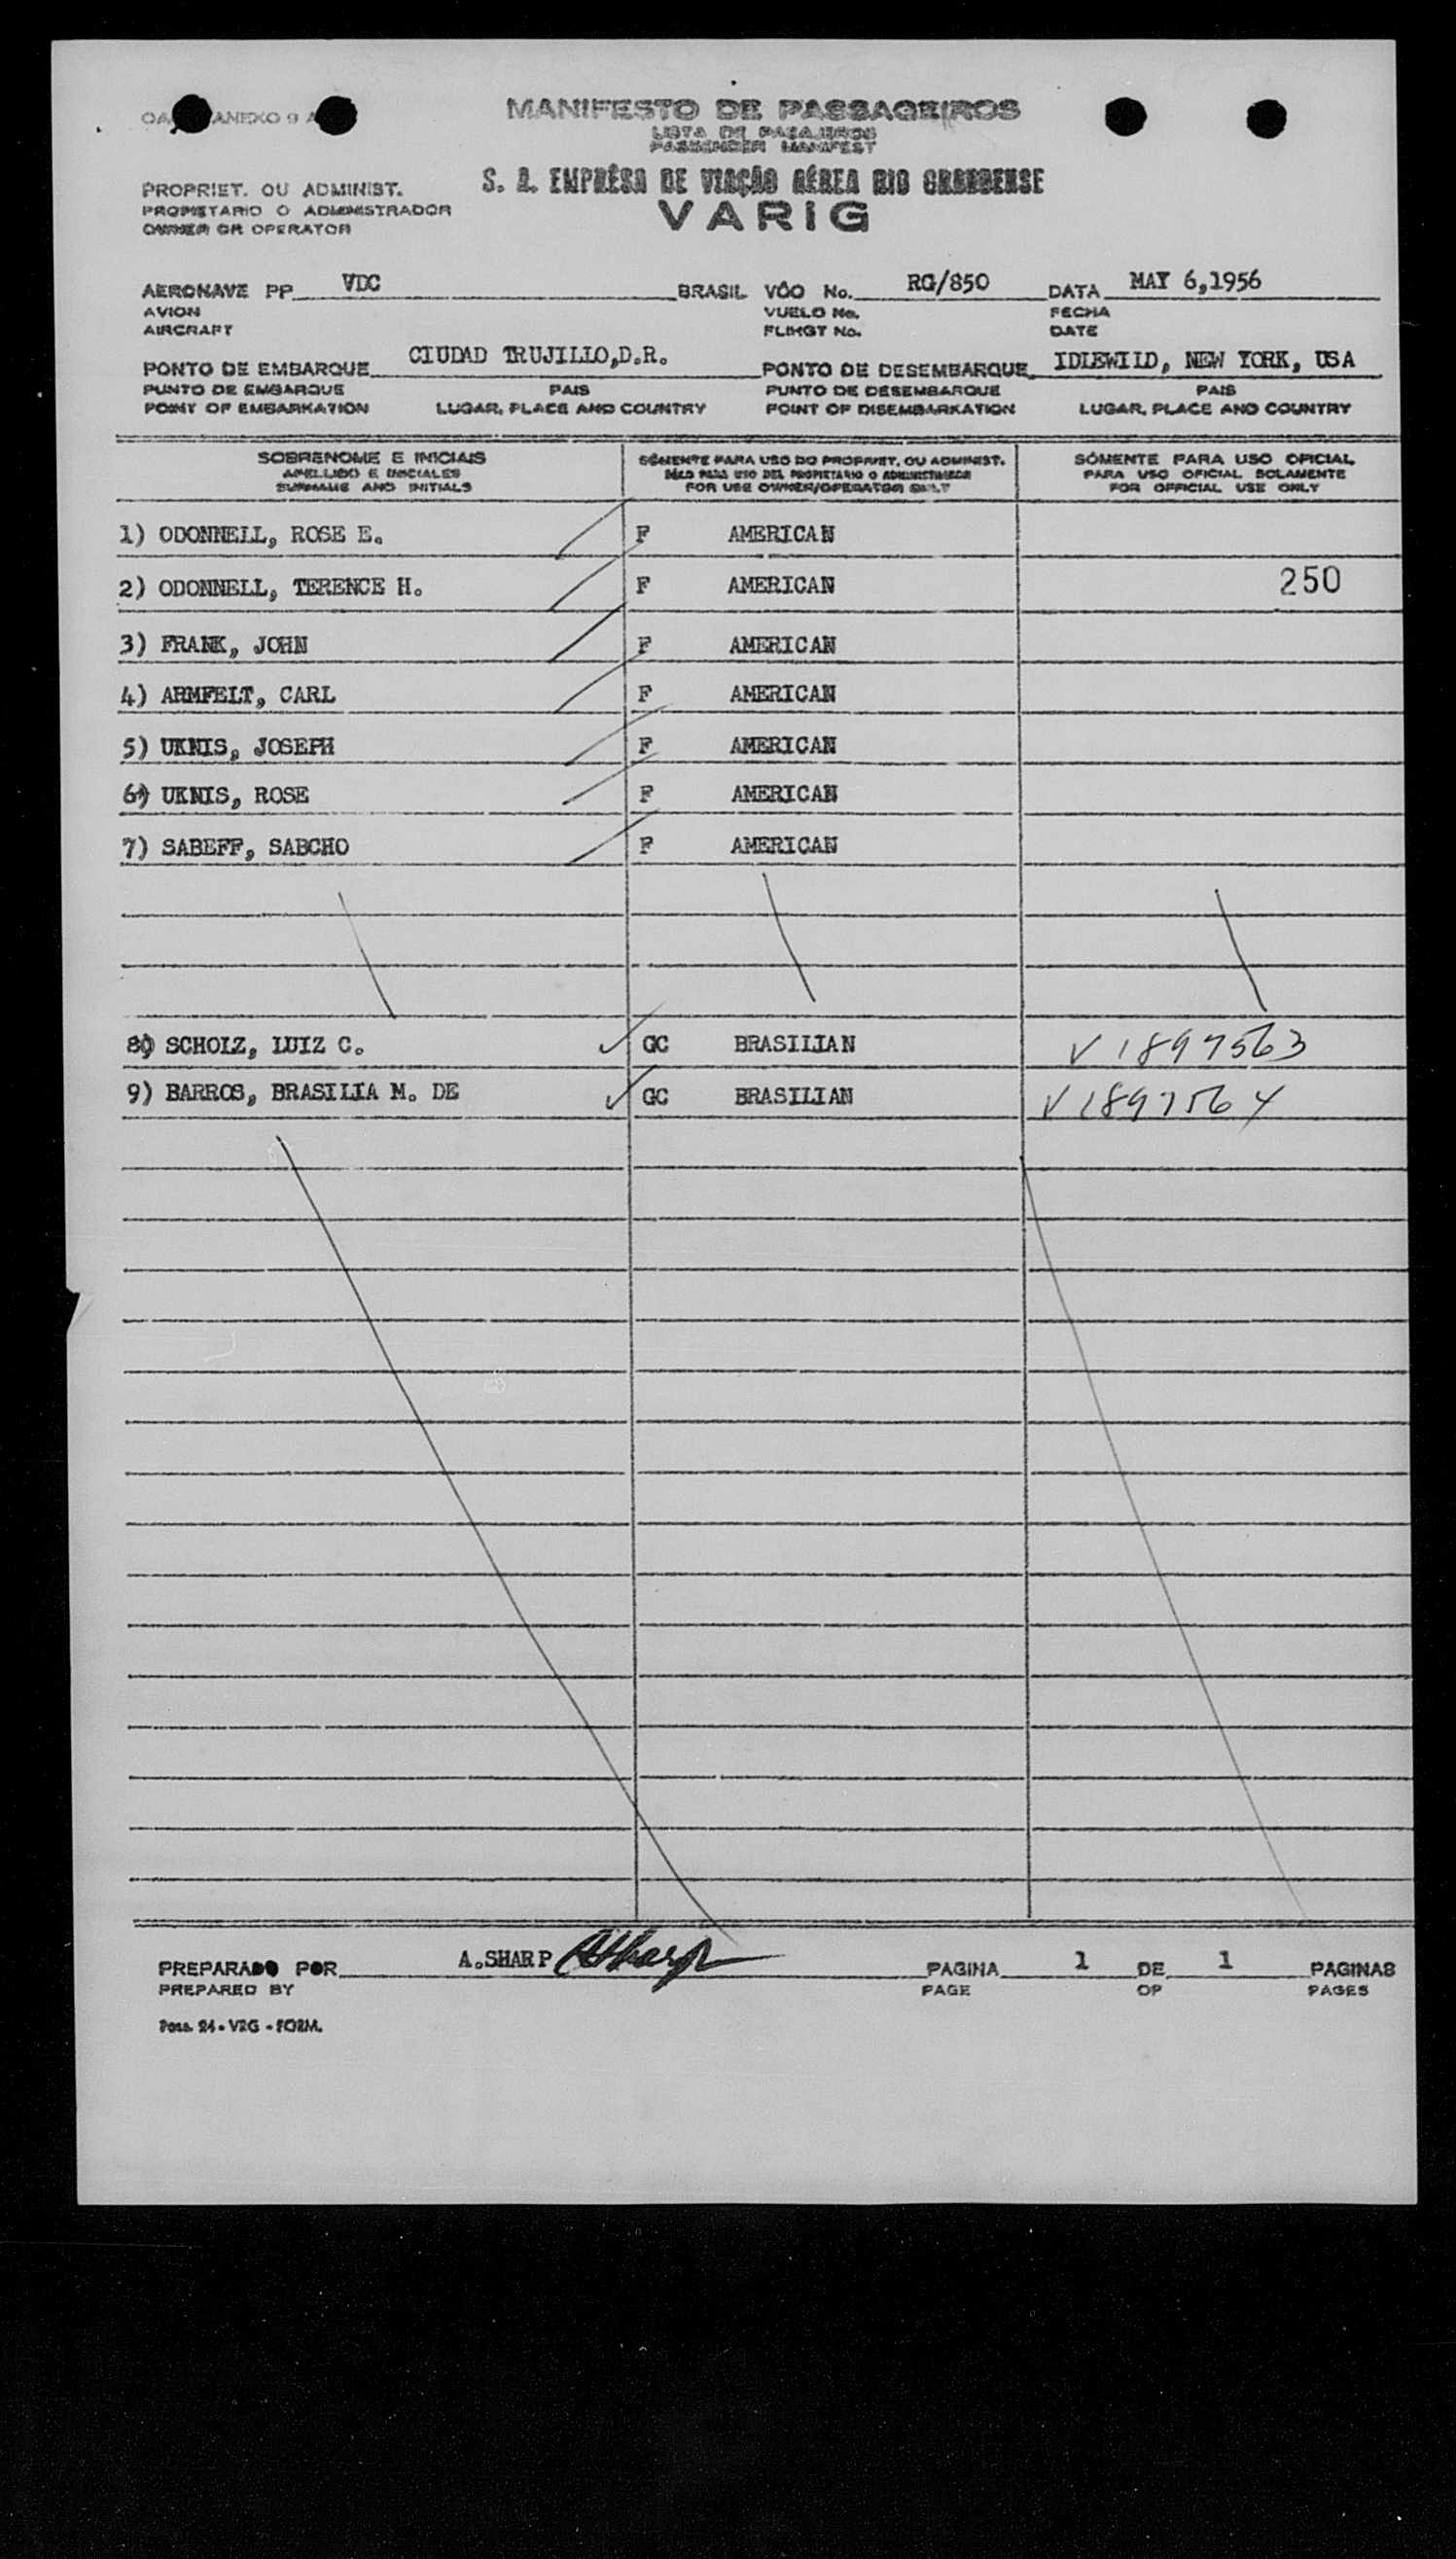 ANEXO 9 A
MANIFESTO DE PASSAGEIROS
LISTA DE PASAJEROS
PASSENGER MANIFEST
S. A. EMPRÊSA DE VIAÇÃO AÉREA RIO GRANDENSE
VARIG
PROPRIET. OU ADMINIST.
PROPIETARIO O ADMINISTRADOR
OWNER OR OPERATOR
AERONAVE PP VDC BRASIL VÔO No. RG/850 DATA MAY 6,1956
AVION VUELO No. FECHA
AIRCRAFT FLIHGT No. DATE
PONTO DE EMBARQUE CIUDAD TRUJILLO,D.R. PONTO DE DESEMBARQUE IDLEWILD, NEW YORK, USA
PUNTO DE EMBARQUE PAIS PUNTO DE DESEMBARQUE PAIS
POINT OF EMBARKATION LUGAR, PLACE AND COUNTRY POINT OF DISEMBARKATION LUGAR, PLACE AND COUNTRY
SOBRENOME E INICIAIS SÓMENTE PARA USO DO PROPRIET. OU ADMINIST. SÓMENTE PARA USO OFICIAL
APELLIDO E INICIALES SÓLO PARA USO DEL PROPIETARIO O ADMINISTRADOR PARA USO OFICIAL SOLAMENTE
SURNAME AND INITIALS FOR USE OWNER/OPERATOR ONLY FOR OFFICIAL USE ONLY
1) ODONNELL, ROSE E. F AMERICAN
2) ODONNELL, TERENCE H. F AMERICAN 250
3) FRANK, JOHN F AMERICAN
4) ARMFELT, CARL F AMERICAN
5) UKNIS, JOSEPH F AMERICAN
6) UKNIS, ROSE F AMERICAN
7) SABEFF, SABCHO F AMERICAN
8) SCHOLZ, LUIZ C. GC BRASILIAN V 1897563
9) BARROS, BRASILIA M. DE GC BRASILIAN V 1897564
PREPARADO POR A.SHARP ASharp PAGINA 1 DE 1 PAGINAS
PREPARED BY PAGE OF PAGES
24 - VRG - FORM.